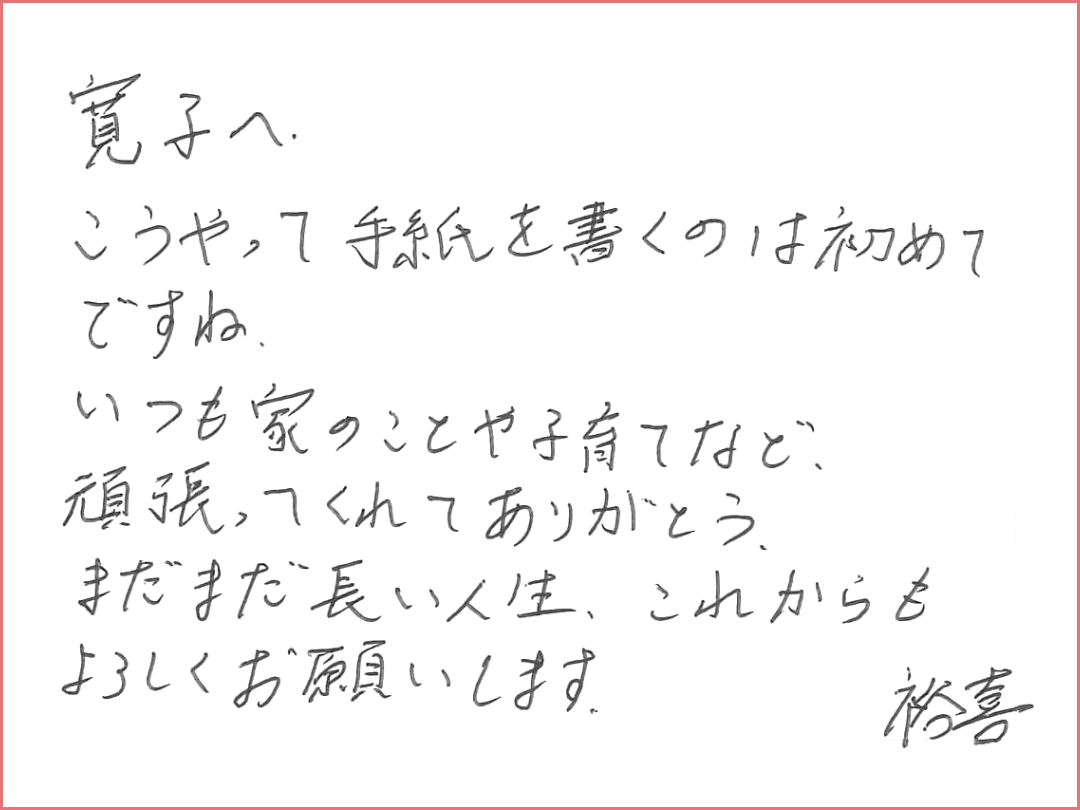 寛子へ.
こうやって手紙を書くのは初めて
ですね.
いつも家のことや子育てなど、
頑張ってくれてありがとう.
まだまだ長い人生、これからも
よろしくお願いします.
裕喜